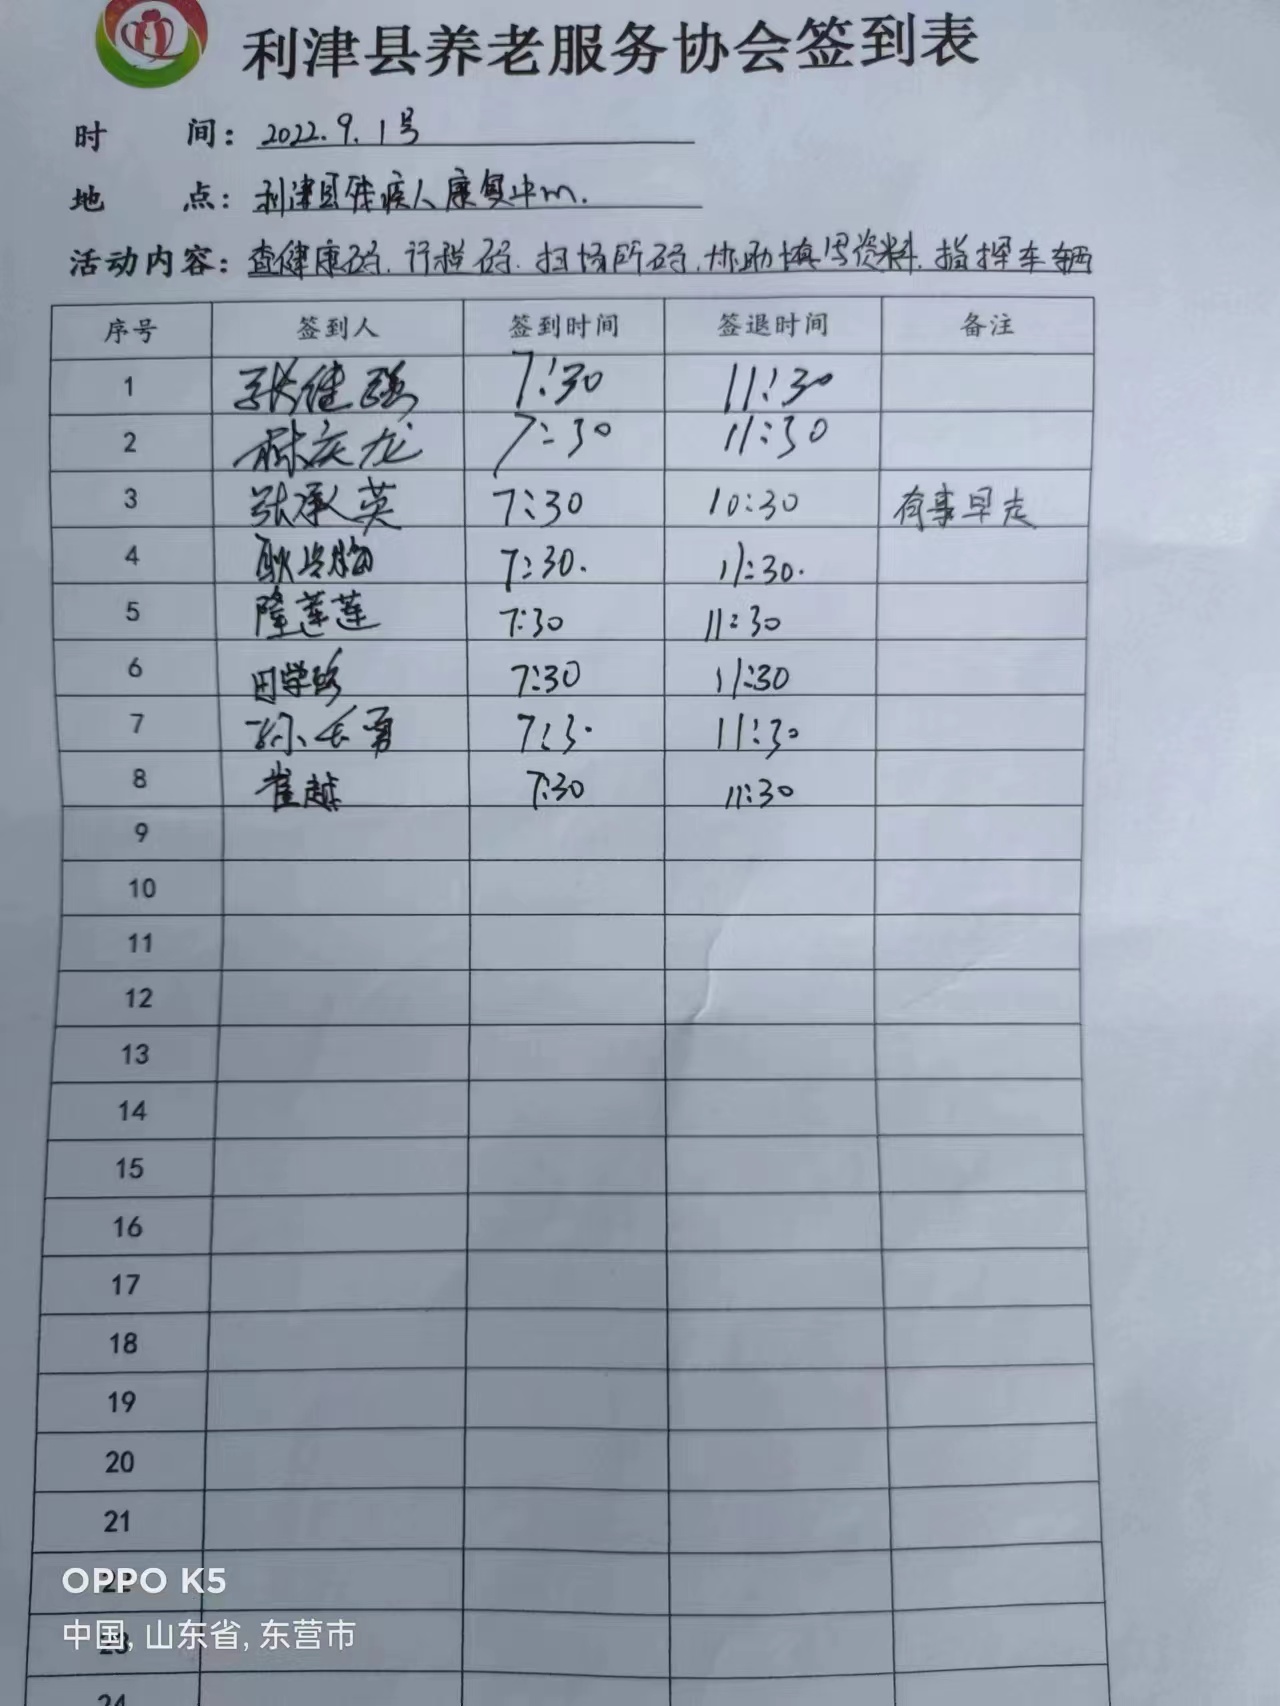 利津县养老服务协会签到表
时 间: 2022.9.1号
地 点: 利津县残疾人康复中心.
活动内容: 查健康码.行程码.扫场所码.协助填写资料.指挥车辆
序号 签到人 签到时间 签退时间 备注
1 张健强 7:30 11:30
2 林庆龙 7:30 11:30
3 张承英 7:30 10:30 有事早走
4 耿 7:30. 11:30.
5 隆莲莲 7:30 11:30
6 田学 7:30 11:30
7 孙长勇 7:30 11:30
8 崔越 7:30 11:30
9
10
11
12
13
14
15
16
17
18
19
20
21
22
OPPO K5
23
中国, 山东省, 东营市
24